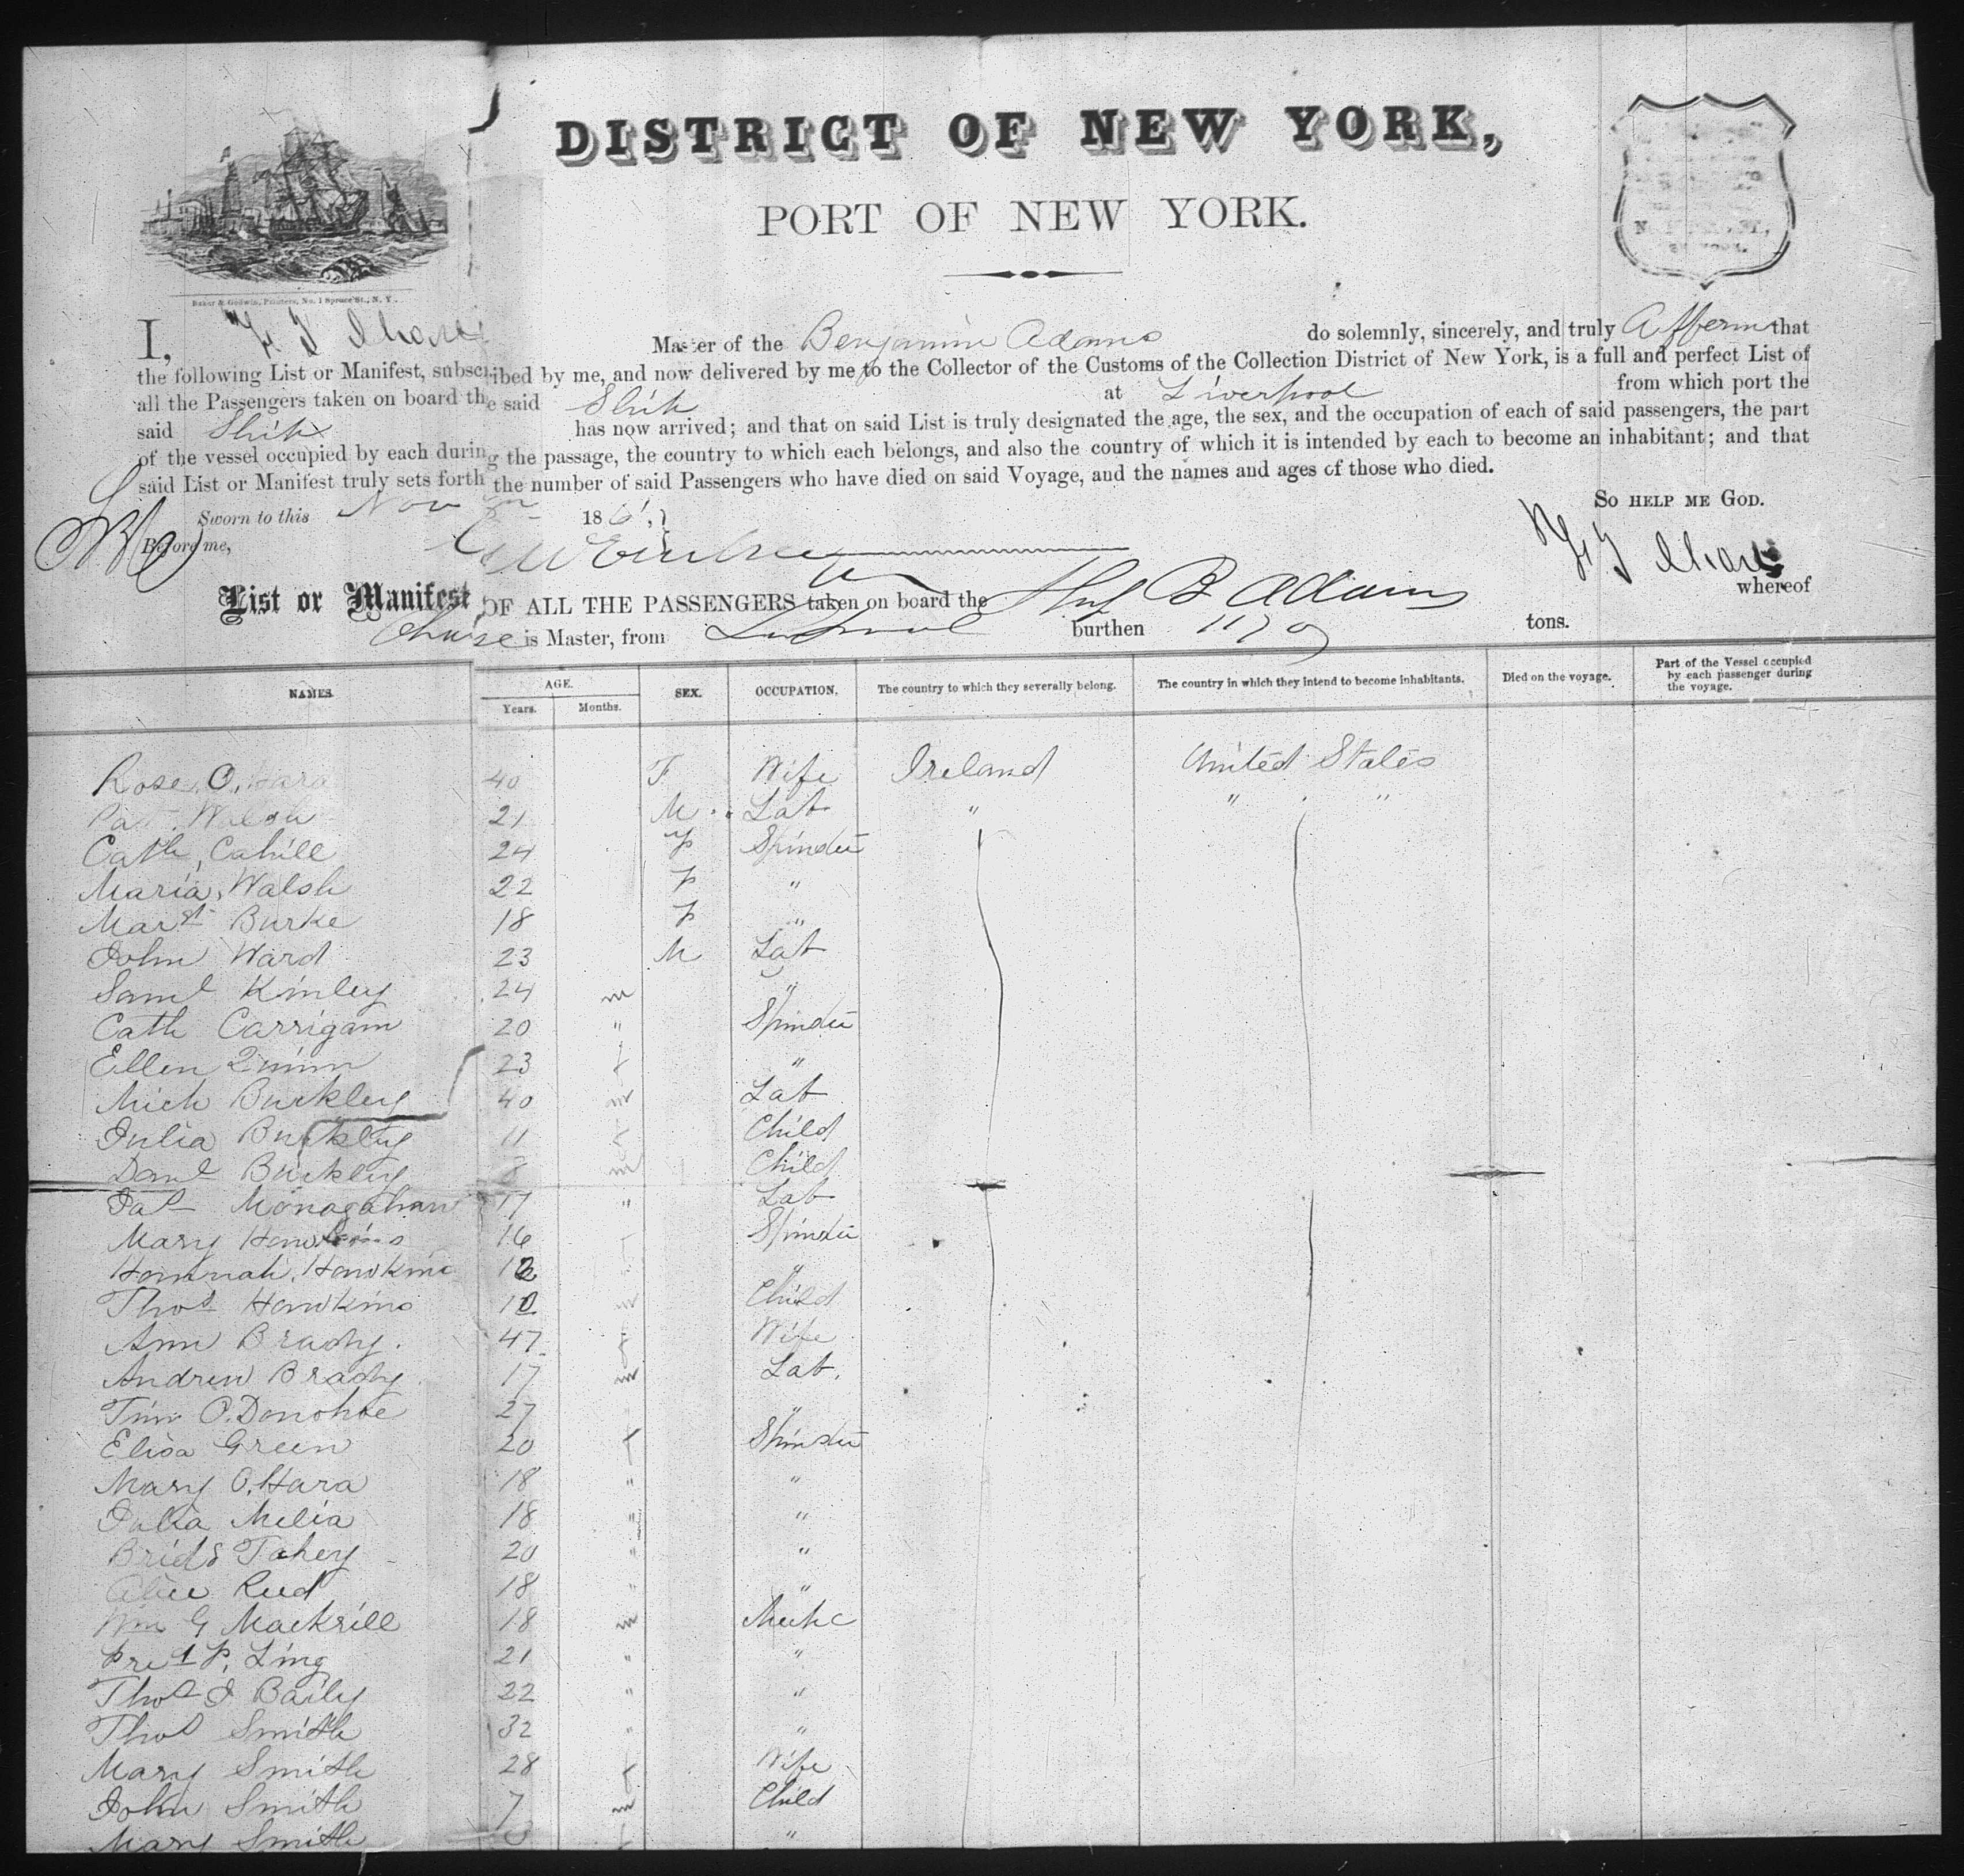 DISTRICT OF NEW YORK,
PORT OF NEW YORK.
Baker & Godwin, Printers, No. 1 Spruce St., N. Y.
I, Master of the Benjamin Adams do solemnly, sincerely, and truly Affirm that
the following List or Manifest, subscribed by me, and now delivered by me to the Collector of the Customs of the Collection District of New York, is a full and perfect List of
all the Passengers taken on board the said Ship at Liverpool from which port the
said Ship has now arrived; and that on said List is truly designated the age, the sex, and the occupation of each of said passengers, the part
of the vessel occupied by each during the passage, the country to which each belongs, and also the country of which it is intended by each to become an inhabitant; and that
said List or Manifest truly sets forth the number of said Passengers who have died on said Voyage, and the names and ages of those who died.
SO HELP ME GOD.
Sworn to this Nov 186
Before me,
List or Manifest OF ALL THE PASSENGERS taken on board the Ship B Adams whereof
Chase is Master, from Liverpool burthen 1170 tons.
NAMES. AGE. Years. Months. SEX. OCCUPATION. The country to which they severally belong. The country in which they intend to become inhabitants. Died on the voyage. Part of the Vessel occupied by each passenger during the voyage.
Rose O'Hara 40 F Wife Ireland United States
Pat. Walsh 21 M Lab " " "
Cath, Cahill 24 F Spinster
Maria, Walsh 22 F "
Margt Burke 18 F "
John Ward 23 M Lab
Saml Kinley 24 m "
Cath Carrigam 20 " Spinster
Ellen Quinn 23 f "
Mich Buckley 40 m Lab
Julia Buckley 11 f Child
Danl Buckley 8 m Child
Pat Monaghan 17 " Lab
Mary Hawkins 16 Spinster
Hannah, Hawkins 12 "
Thos Hawkins 10 m Child
Ann Brady. 47 f Wife
Andrew Brady 17 m Lab.
Tim O'Donohoe 27 "
Elisa Green 20 f Spinster
Mary O'Hara 18 " "
Julia Melia 18 " "
Bridt Fahey 20 " "
Alice Reed 18 " "
Wm G Mackrill 18 m Mechc
Fred F. Ling 21 " "
Thos J Baily 22 " "
Thos Smith 32 " "
Mary Smith 28 f Wife
John Smith 7 m Child
Mary Smith "